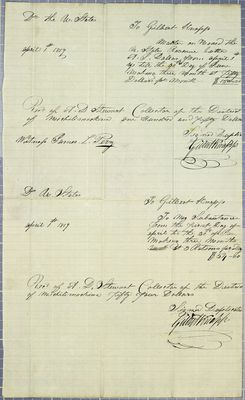 Dr the U States
To Gilbert Knapp
April 1st 1819
Master on Board the
U States Revenue Cutter
A. J. Dallas from April 1
up till the 30th Day of June
Making three Month at Fifty
Dollars pr Month
Recd of A D Stewart Collector of the District
of Michilimackinac one hundred and fifty Dollars
Signed Duplicate
Gilbert Knapp
Witness James
Dr U States
To Gilbert Knapp
April 1st 1819
To My Subsistance
from the first Day of
April to the 30th of June
Making three Months
at 3 Rations pr Day
$54-60
Recd of A. D. Stewart Collector of the District
of Michilimackinac Fifty four Dollars
Signed Duplicate
Gilbert Knapp